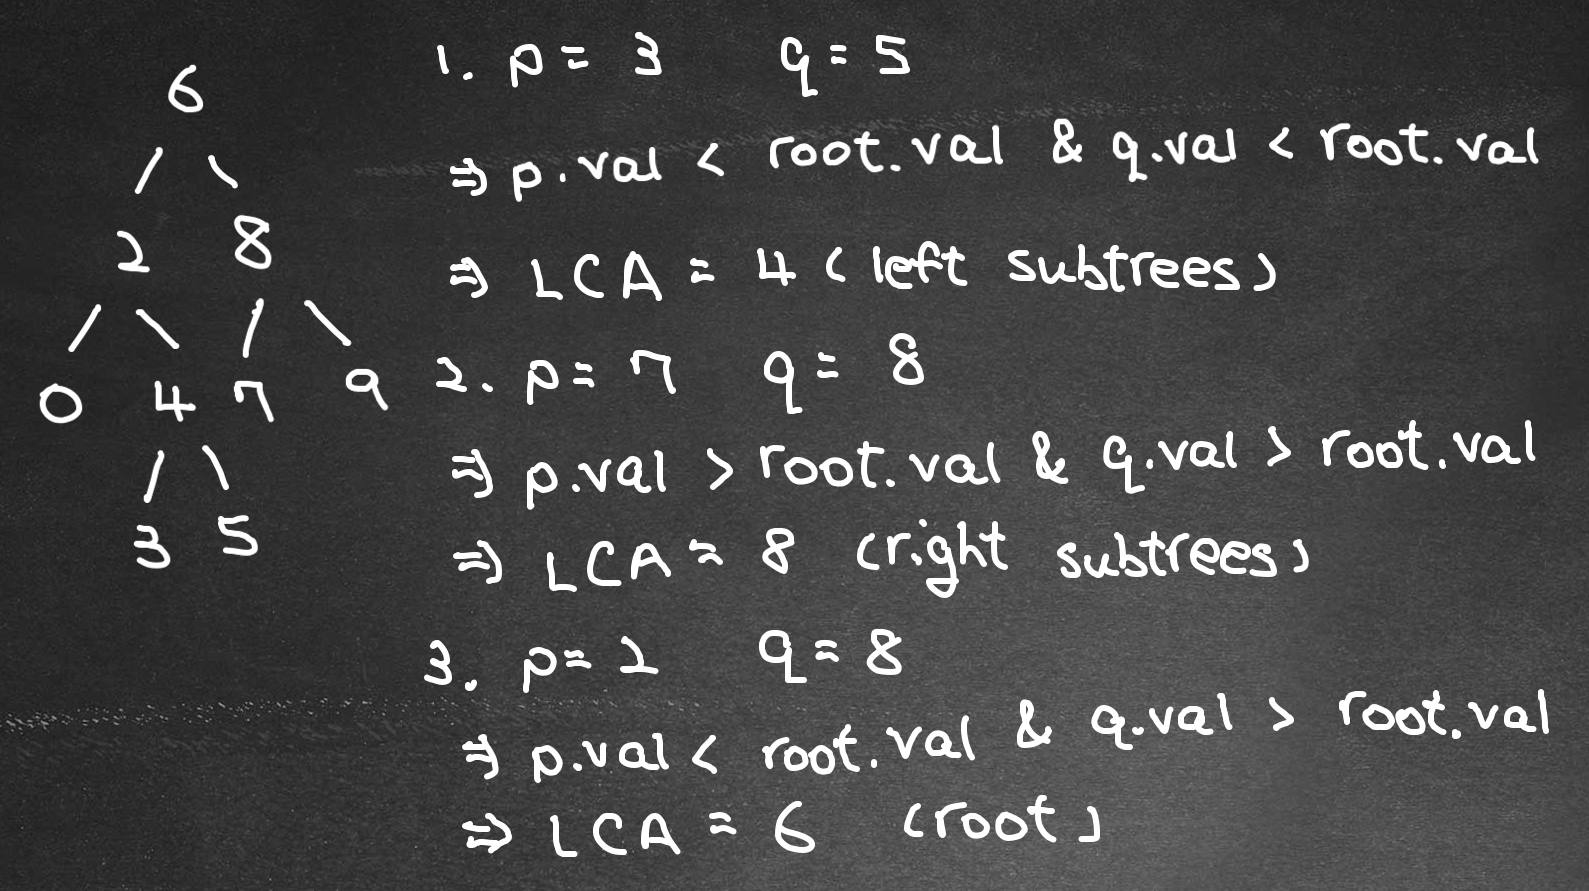 6
2 8
0 4 7 9
3 5
1. p = 3 q = 5
⇒ p.val < root.val & q.val < root.val
⇒ LCA = 4 (left subtrees)
2. p = 7 q = 8
⇒ p.val > root.val & q.val > root.val
⇒ LCA = 8 (right subtrees)
3. p = 2 q = 8
⇒ p.val < root.val & q.val > root.val
⇒ LCA = 6 (root)